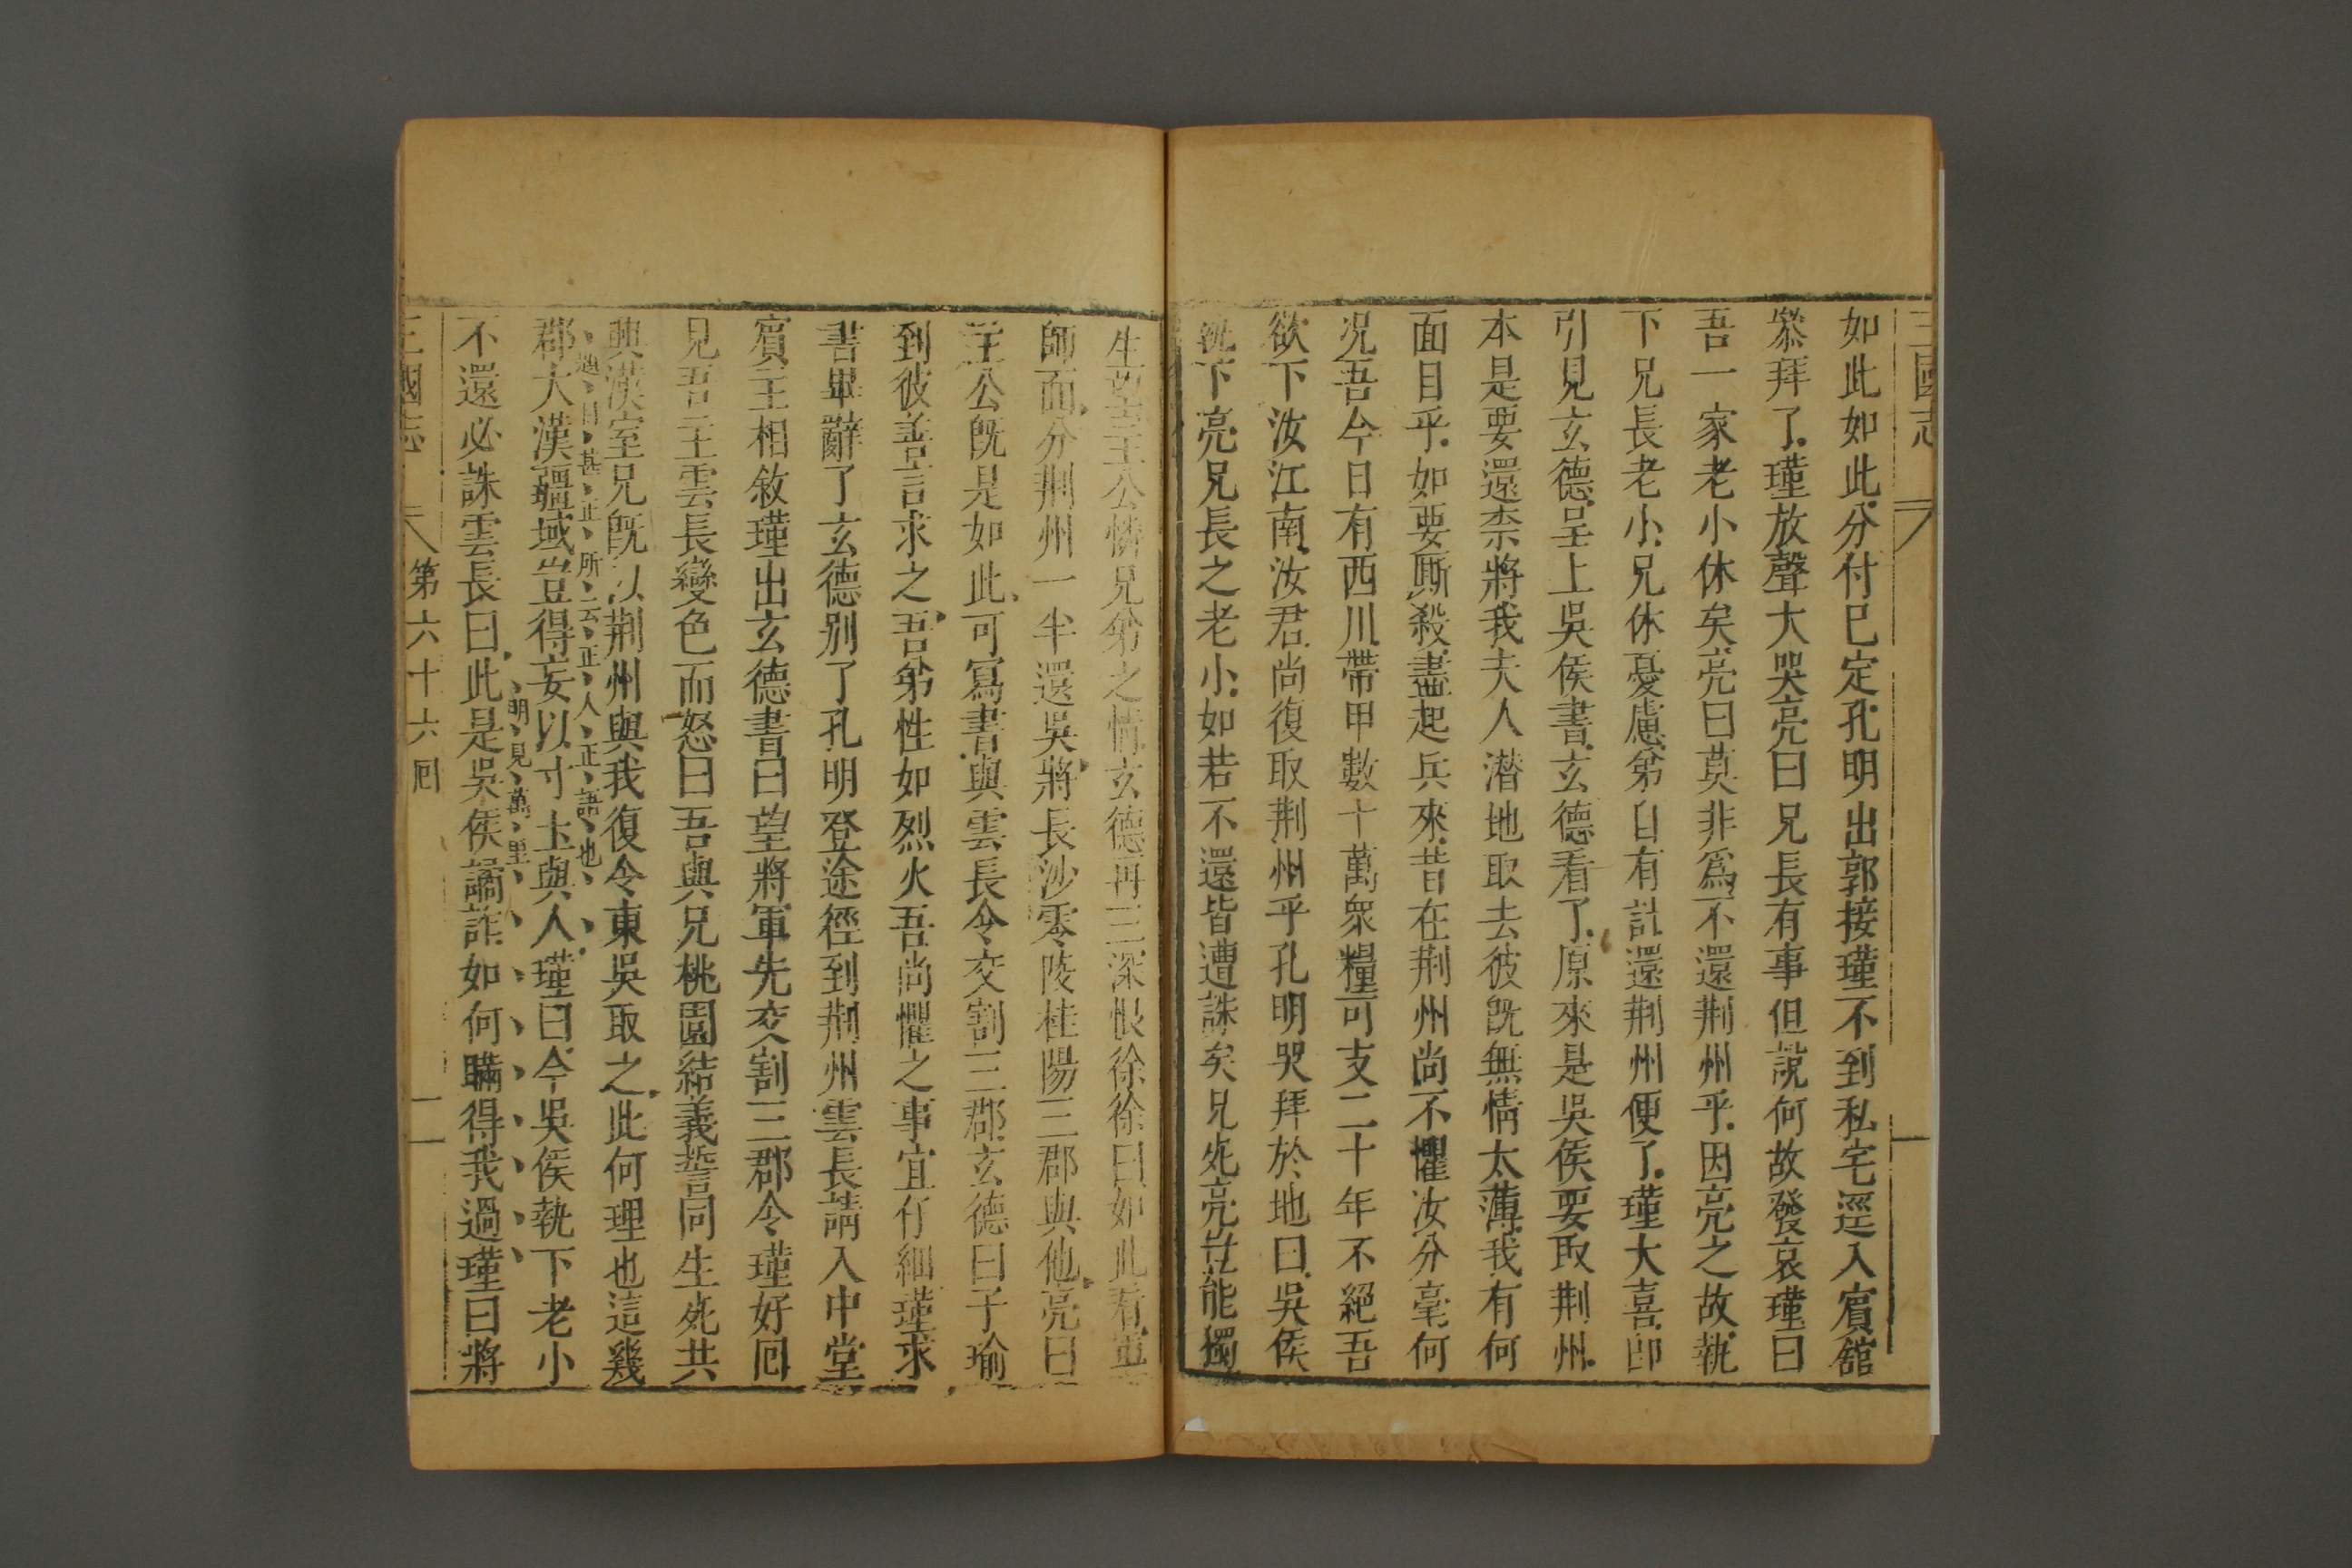 三國志
如此如此分付已定孔明出郭接瑾不到私宅逕入賓舘
叅拜了瑾放聲大哭亮曰兄長有事但說何故發哀瑾曰
吾一家老小休矣亮曰莫非爲不還荆州乎因亮之故執
下兄長老小兄休憂慮弟自有計還荆州便了瑾大喜即
引見玄德呈上吳侯書玄德看了原來是吳侯要取荆州
本是要還柰將我夫人潜地取去彼旣無情太薄我有何
面目乎如要厮殺盡起兵來昔在荆州尚不懼汝分毫何
况吾今日有西川帶甲數十萬衆糧可支二十年不絕吾
欲下汝江南汝君尚復取荆州乎孔明哭拜於地曰吳侯
執下亮兄長之老小如若不還皆遭誅矣兄死亮豈能獨
生望主公憐兄弟之情玄德再三深恨徐徐曰如此看軍
師面分荆州一半還吳將長沙零陵桂陽三郡與他亮曰
主公旣是如此可寫書與雲長令交割三郡玄德曰子瑜
到彼善言求之吾弟性如烈火吾尚懼之事宜仔細瑾求
書畢辭了玄德别了孔明登途徑到荆州雲長請入中堂
賓主相敘瑾出玄德書曰望將軍先交割三郡令瑾好囘
見吾主雲長變色而怒曰吾與兄桃園結義誓同生死共
興漢室兄旣以荆州與我復令東吳取之此何理也這幾
甚正所云正人正語也
郡大漢疆域豈得妄以寸土與人瑾曰今吳侯執下老小
明見萬里
不還必誅雲長曰此是吳侯譎詐如何瞞得我過瑾曰將
三國志 第六十六囘 二